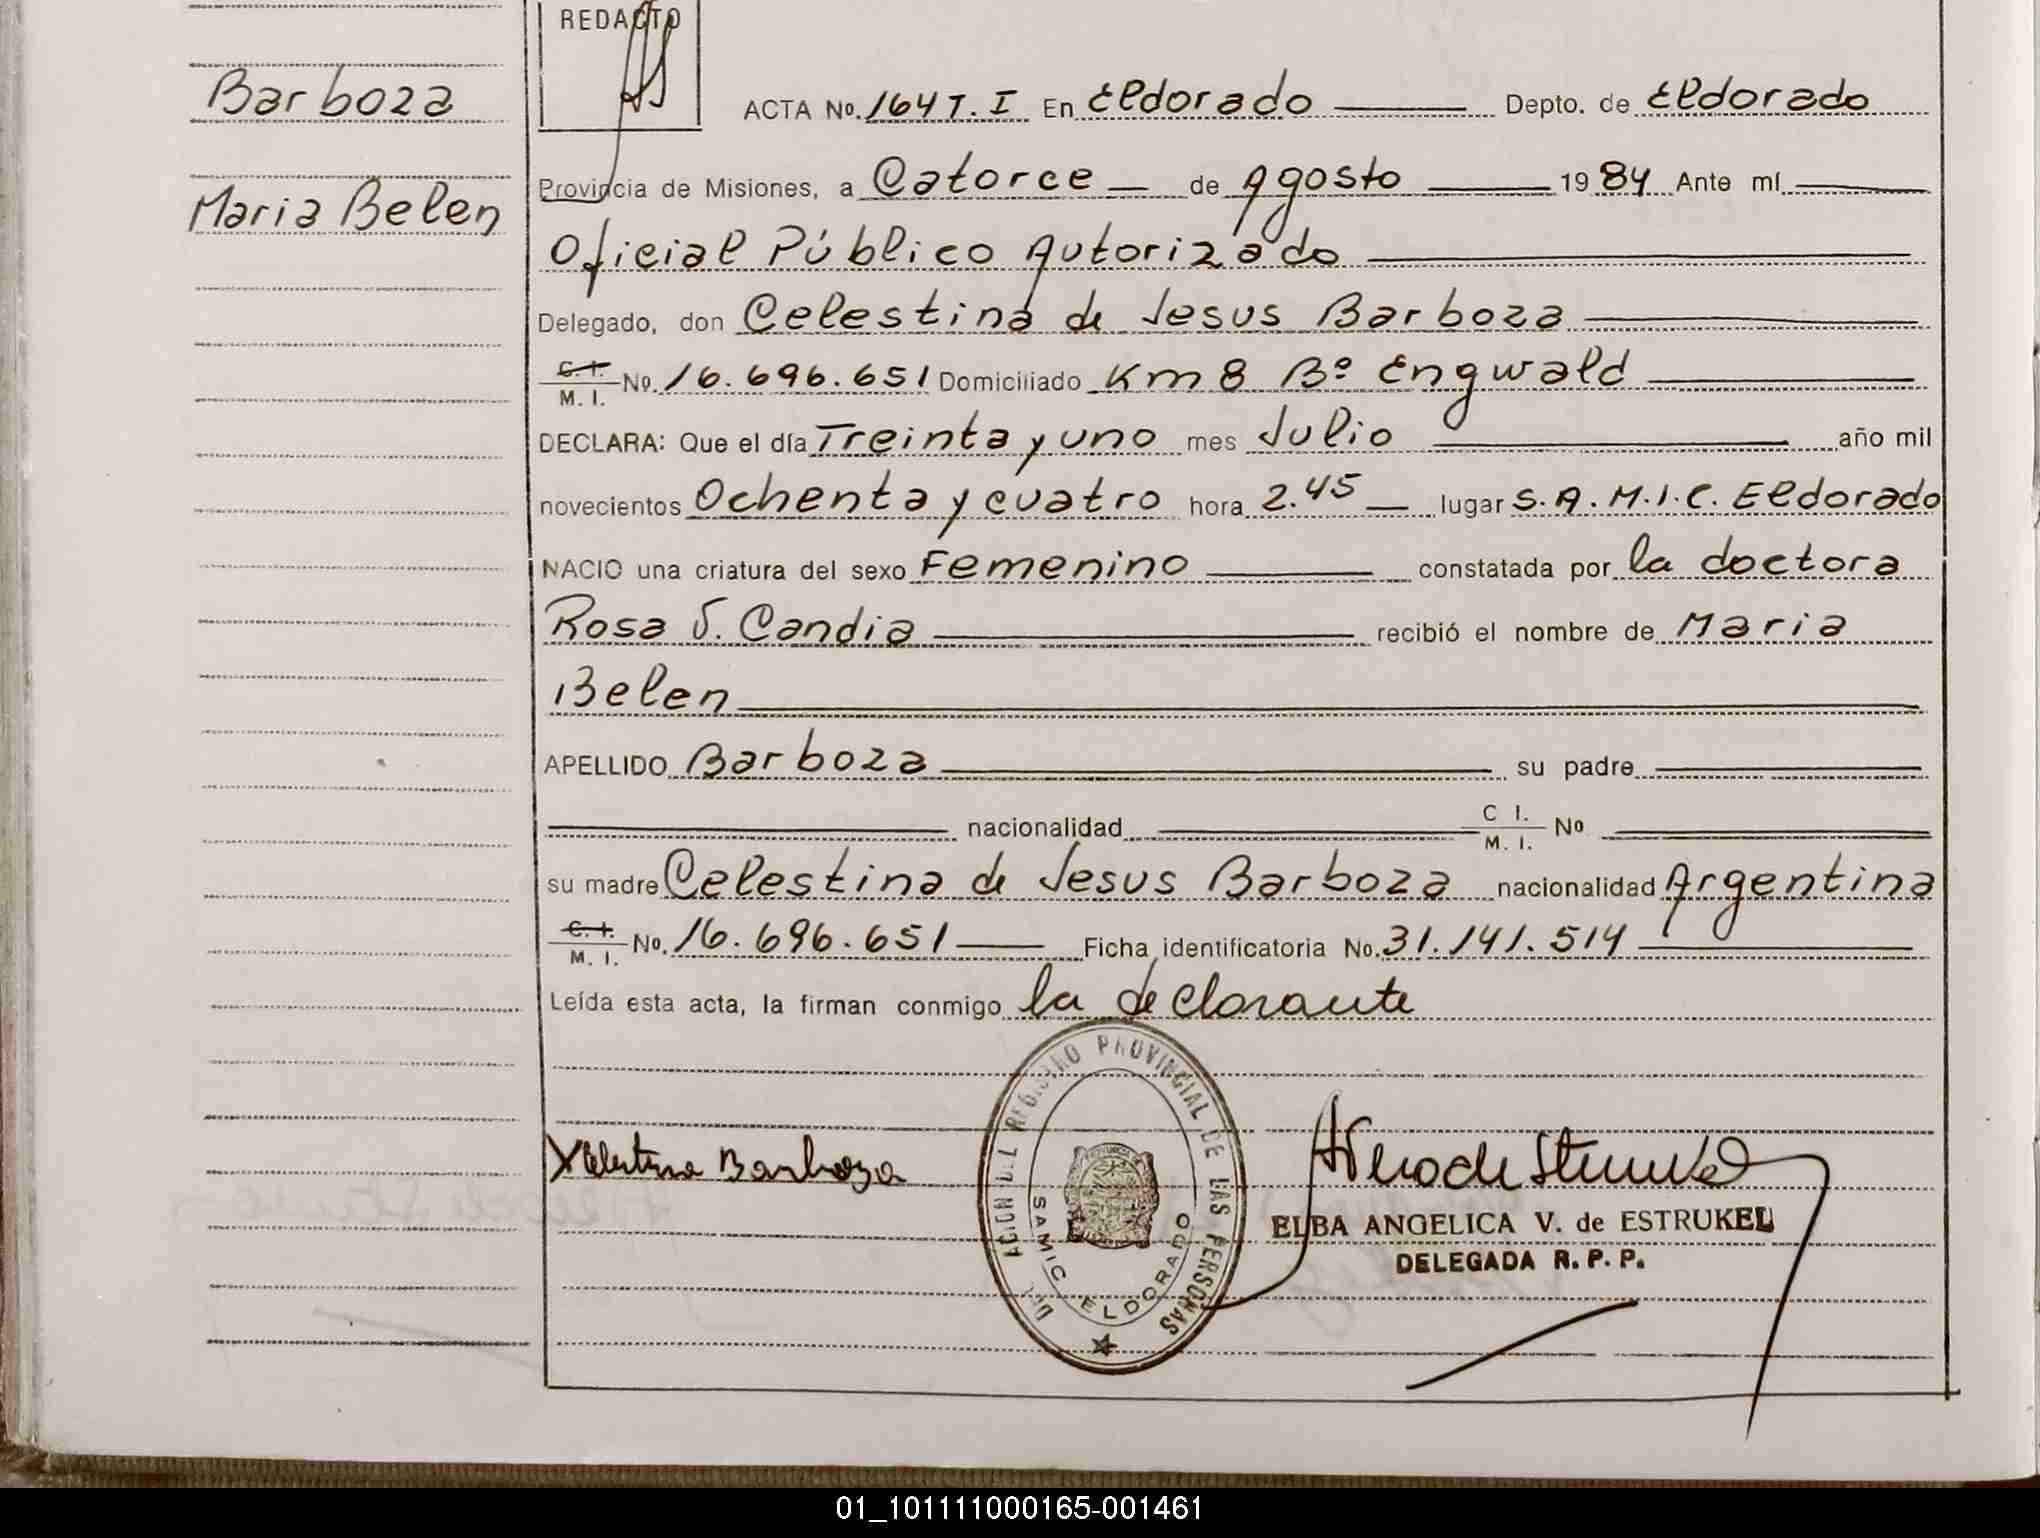 REDACTO
Barboza
ACTA No. 164 T. I En Eldorado Depto. de Eldorado
Maria Belen
Provincia de Misiones, a Catorce de Agosto 1984 Ante mí
Oficial Público Autorizado
Delegado, don Celestina de Jesus Barboza
C. I. M. I. No. 16.696.651 Domiciliado Km 8 Bº Engwald
DECLARA: Que el día Treinta y uno mes Julio año mil
novecientos Ochenta y cuatro hora 2.45 lugar S.A.M.I.C. Eldorado
NACIO una criatura del sexo Femenino constatada por la doctora
Rosa S. Candia recibió el nombre de Maria
Belen
APELLIDO Barboza su padre
nacionalidad C I. M. I. No
su madre Celestina de Jesus Barboza nacionalidad Argentina
C. I. M. I. No. 16.696.651 Ficha identificatoria No. 31.141.514
Leída esta acta, la firman conmigo la declarante
REGISTRO PROVINCIAL DE LAS PERSONAS
SAMIC ELDORADO
Celestina Barboza
ELBA ANGELICA V. de ESTRUKEL
DELEGADA R. P. P.
01_101111000165-001461